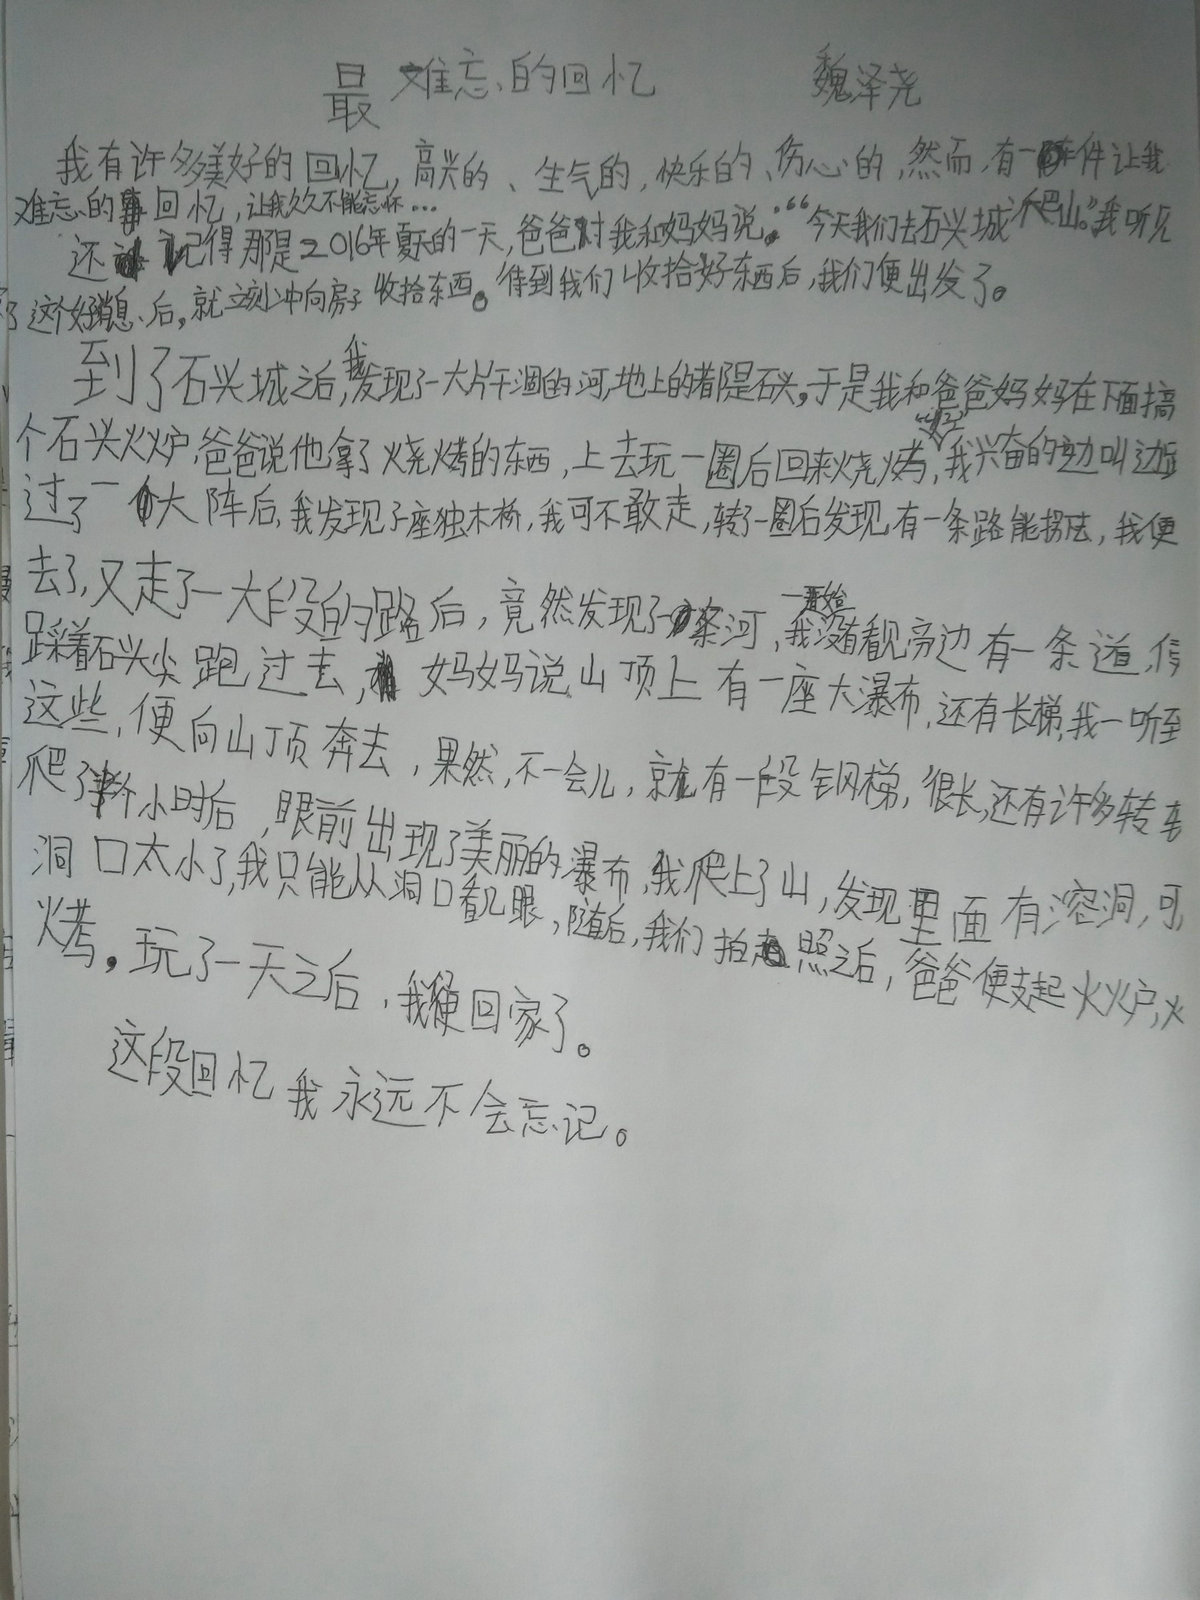 最难忘的回忆 魏泽尧
我有许多美好的回忆,高兴的、生气的,快乐的、伤心的,然而,有一件让我
难忘的回忆,让我久久不能忘怀…
还记得那是2016年夏天的一天,爸爸对我和妈妈说:“今天我们去石兴城爬山。”我听见
了这个好消息后,就立刻冲向房子收拾东西。待到我们收拾好东西后,我们便出发了。
到了石兴城之后,我发现了一大片干涸的河,地上的都是石头,于是我和爸爸妈妈在下面搞
个石兴火炉,爸爸说他拿了烧烤的东西,上去玩一圈后回来烧烤,我兴奋的边叫边
过了一大阵后,我发现了座独木桥,我可不敢走,转了一圈后发现有一条路能拐去,我便
去了,又走了一大段的路后,竟然发现了一条河,我一开始没有看见旁边有一条道,
踩着石兴尖跑过去,妈妈说山顶上有一座大瀑布,还有长梯,我一听到
这些,便向山顶奔去,果然,不一会儿,就有一段钢梯,很长,还有许多转
爬了半个小时后,眼前出现了美丽的瀑布,我爬上了山,发现里面有溶洞,可
洞口太小了,我只能从洞口看几眼,随后,我们拍照之后,爸爸便支起火炉,
烤,玩了一天之后,我便回家了。
这段回忆我永远不会忘记。